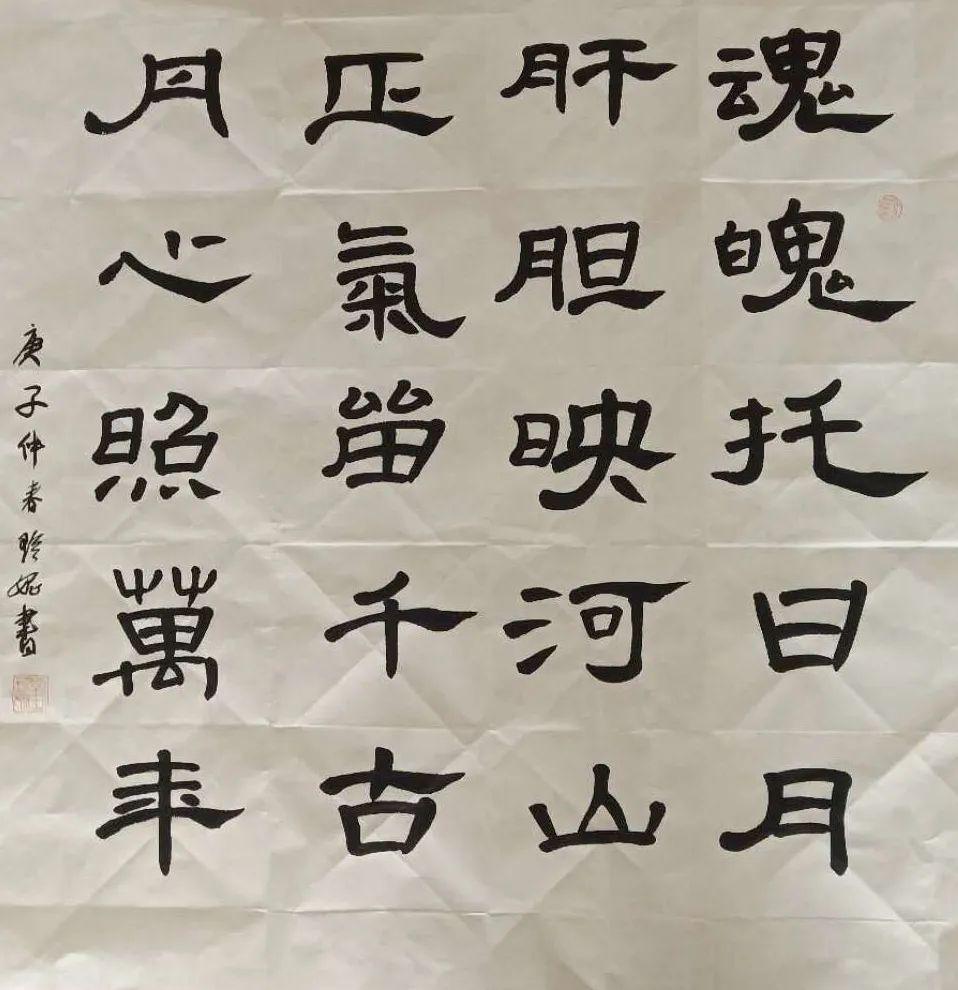 魂魄托日月
肝胆映河山
正氣留千古
丹心照萬年
庚子仲春書